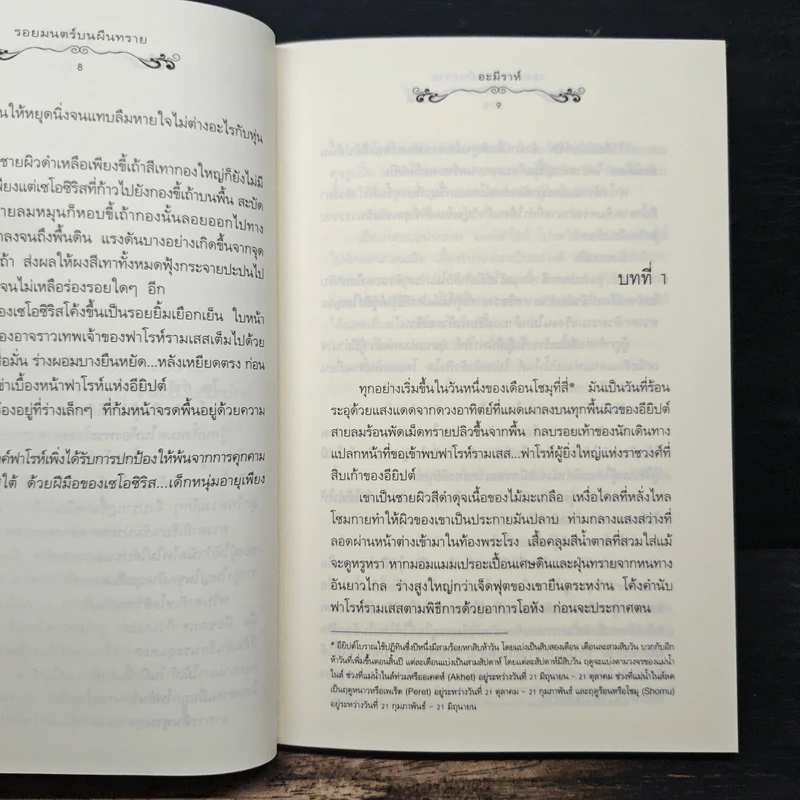 รอยมนตร์บนผืนทราย
8
นให้หยุดนิ่งจนแทบลืมหายใจไม่ต่างอะไรกับหุ่น
ชายผิวดำเหลือเพียงขี้เถ้าสีเทากองใหญ่ก็ยังไม่มี
พียงแต่เซโอซิริสที่ก้าวไปยังกองขี้เถ้าบนพื้น สะบัด
ายลมหมุนก็หอบขี้เถ้ากองนั้นลอยออกไปทาง
าลงจนถึงพื้นดิน แรงดันบางอย่างเกิดขึ้นจากจุด
ถ้า ส่งผลให้ผงสีเทาทั้งหมดฟุ้งกระจายปะปนไป
จนไม่เหลือร่องรอยใดๆ อีก
องเซโอซิริสโค้งขึ้นเป็นรอยยิ้มเยือกเย็น ใบหน้า
องอาจราวเทพเจ้าของฟาโรห์รามเสสเต็มไปด้วย
ชื่อมั่น ร่างผอมบางยืนหยัด...หลังเหยียดตรง ก่อน
ข่าเบื้องหน้าฟาโรห์แห่งอียิปต์
้องอยู่ที่ร่างเล็กๆ ที่ก้มหน้าจรดพื้นอยู่ด้วยความ
ค์ฟาโรห์เพิ่งได้รับการปกป้องให้พ้นจากการคุกคาม
ใต้ ด้วยฝีมือของเซโอซิริส...เด็กหนุ่มอายุเพียง
อะมีราห์
9
บทที่ 1
ทุกอย่างเริ่มขึ้นในวันหนึ่งของเดือนโชมุที่สี่* มันเป็นวันที่ร้อน
ระอุด้วยแสงแดดจากดวงอาทิตย์ที่แผดเผาลงบนทุกพื้นผิวของอียิปต์
สายลมร้อนพัดเม็ดทรายปลิวขึ้นจากพื้น กลบรอยเท้าของนักเดินทาง
แปลกหน้าที่ขอเข้าพบฟาโรห์รามเสส...ฟาโรห์ผู้ยิ่งใหญ่แห่งราชวงศ์ที่
สิบเก้าของอียิปต์
เขาเป็นชายผิวสีดำดุจเนื้อของไม้มะเกลือ เหงื่อไคลที่หลั่งไหล
โซมกายทำให้ผิวของเขาเป็นประกายมันปลาบ ท่ามกลางแสงสว่างที่
ลอดผ่านหน้าต่างเข้ามาในท้องพระโรง เสื้อคลุมสีน้ำตาลที่สวมใส่แม้
จะดูหรูหรา หากมอมแมมเปรอะเปื้อนเศษดินและฝุ่นทรายจากหนทาง
อันยาวไกล ร่างสูงใหญ่กว่าเจ็ดฟุตของเขายืนตระหง่าน โค้งคำนับ
ฟาโรห์รามเสสตามพิธีการด้วยอาการโอหัง ก่อนจะประกาศตน
* อียิปต์โบราณใช้ปฏิทินซึ่งปีหนึ่งมีสามร้อยหกสิบห้าวัน โดยแบ่งเป็นสิบสองเดือน เดือนละสามสิบวัน บวกกับอีก
ห้าวันที่เพิ่มขึ้นตอนสิ้นปี แต่ละเดือนแบ่งเป็นสามสัปดาห์ โดยแต่ละสัปดาห์มีสิบวัน ฤดูจะแบ่งตามวงจรของแม่น้ำ
ไนล์ ช่วงที่แม่น้ำไนล์ท่วมหรืออเคตห์ (Akhet) อยู่ระหว่างวันที่ 21 มิถุนายน - 21 ตุลาคม ช่วงที่แม่น้ำไนล์ลด
เป็นฤดูหนาวหรือเพเร็ต (Peret) อยู่ระหว่างวันที่ 21 ตุลาคม - 21 กุมภาพันธ์ และฤดูร้อนหรือโชมุ (Shomu)
อยู่ระหว่างวันที่ 21 กุมภาพันธ์ - 21 มิถุนายน